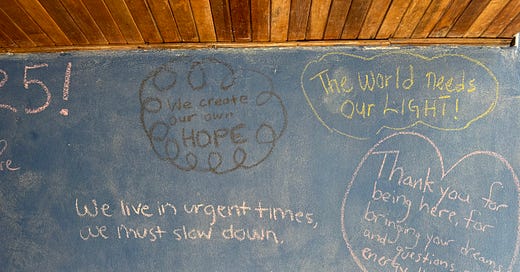 25!
We create
our own
HOPE
The World Needs
Our LIGHT!
We live in urgent times,
we must slow down.
Thank you for
being here, for
bringing your dreams
and questions,